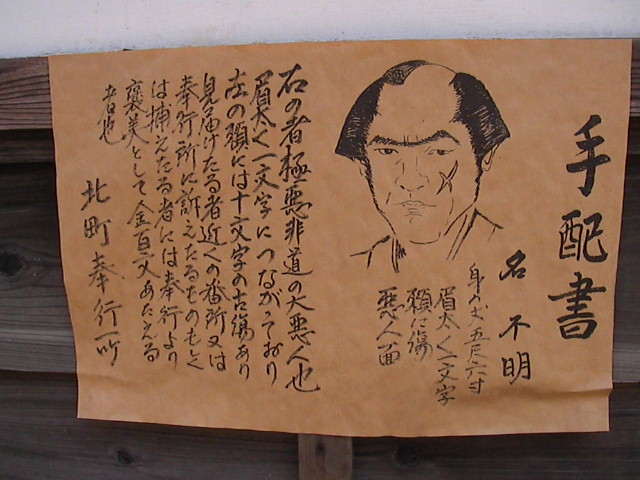 手配書
名不明
身の丈五尺六寸
眉太く一文字
頬に傷
悪人面
右の者極悪非道の大悪人也
眉太く一文字につながっており
左の頬には十文字の古傷あり
見届けたる者近くの番所又は
奉行所に訴えたるものもしく
は捕えたる者には奉行より
褒美として金百文あたえる
者也
北町奉行所